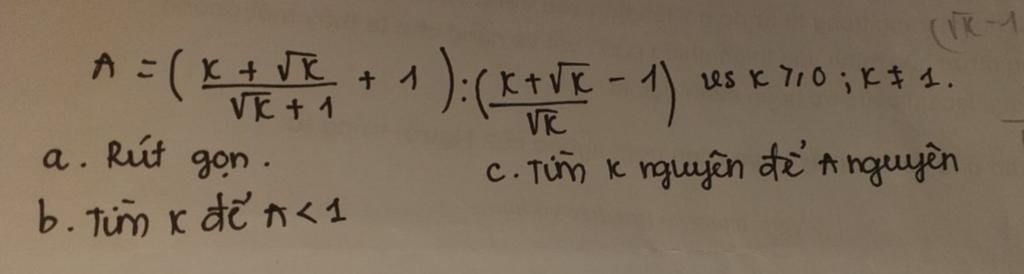 (√x - 1
A = ( (x + √x)/(√x + 1) + 1 ) : ( (x + √x)/√x - 1 ) với x ≥ 0 ; x ≠ 1.
a. Rút gọn.
c. Tìm x nguyên để A nguyên
b. Tìm x để A < 1